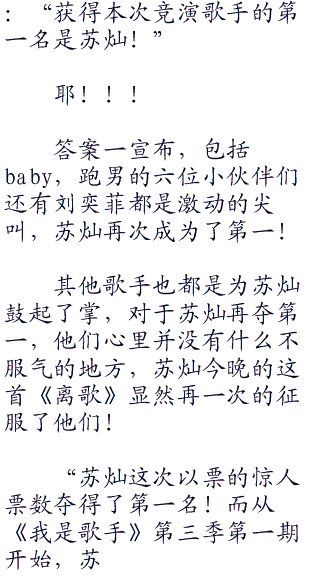 ：“获得本次竞演歌手的第
一名是苏灿！”
耶！！！
答案一宣布，包括
baby，跑男的六位小伙伴们
还有刘奕菲都是激动的尖
叫，苏灿再次成为了第一！
其他歌手也都是为苏灿
鼓起了掌，对于苏灿再夺第
一，他们心里并没有什么不
服气的地方，苏灿今晚的这
首《离歌》显然再一次的征
服了他们！
“苏灿这次以票的惊人
票数夺得了第一名！而从
《我是歌手》第三季第一期
开始，苏